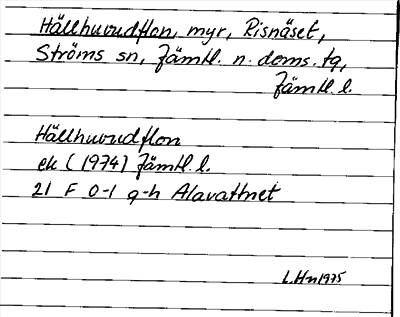 Hällhuvudflon, myr, Risnäset,
Ströms sn, Jämtl. n. doms. tg,
Jämtl. l.
Hällhuvudflon
ek (1974) Jämtl. l.
21 F 0-1 g-h Alavattnet
L.Hn 1975